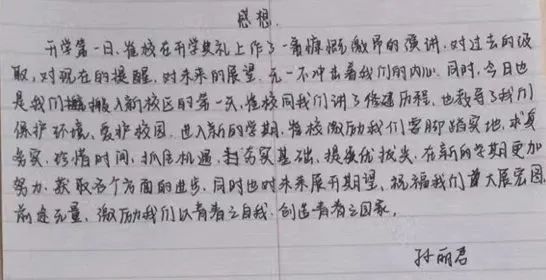 感想.
开学第一日,崔校在开学典礼上作了一番慷慨激昂的演讲,对过去的汲
取,对现在的提醒,对未来的展望,无一不冲击着我们的内心.同时,今日也
是我们搬入新校区的第一天,崔校同我们讲了修建历程,也教导了我们
保护环境、爱护校园.进入新的学期,崔校激励我们要脚踏实地,求真
务实,珍惜时间,抓住机遇,夯实基础,提优拔尖.在新的学期更加
努力,获取各个方面的进步,同时也对未来展开期望,祝福我们大展宏图,
前途无量,激励我们以青春之自我,创造青春之国家。
孙丽君